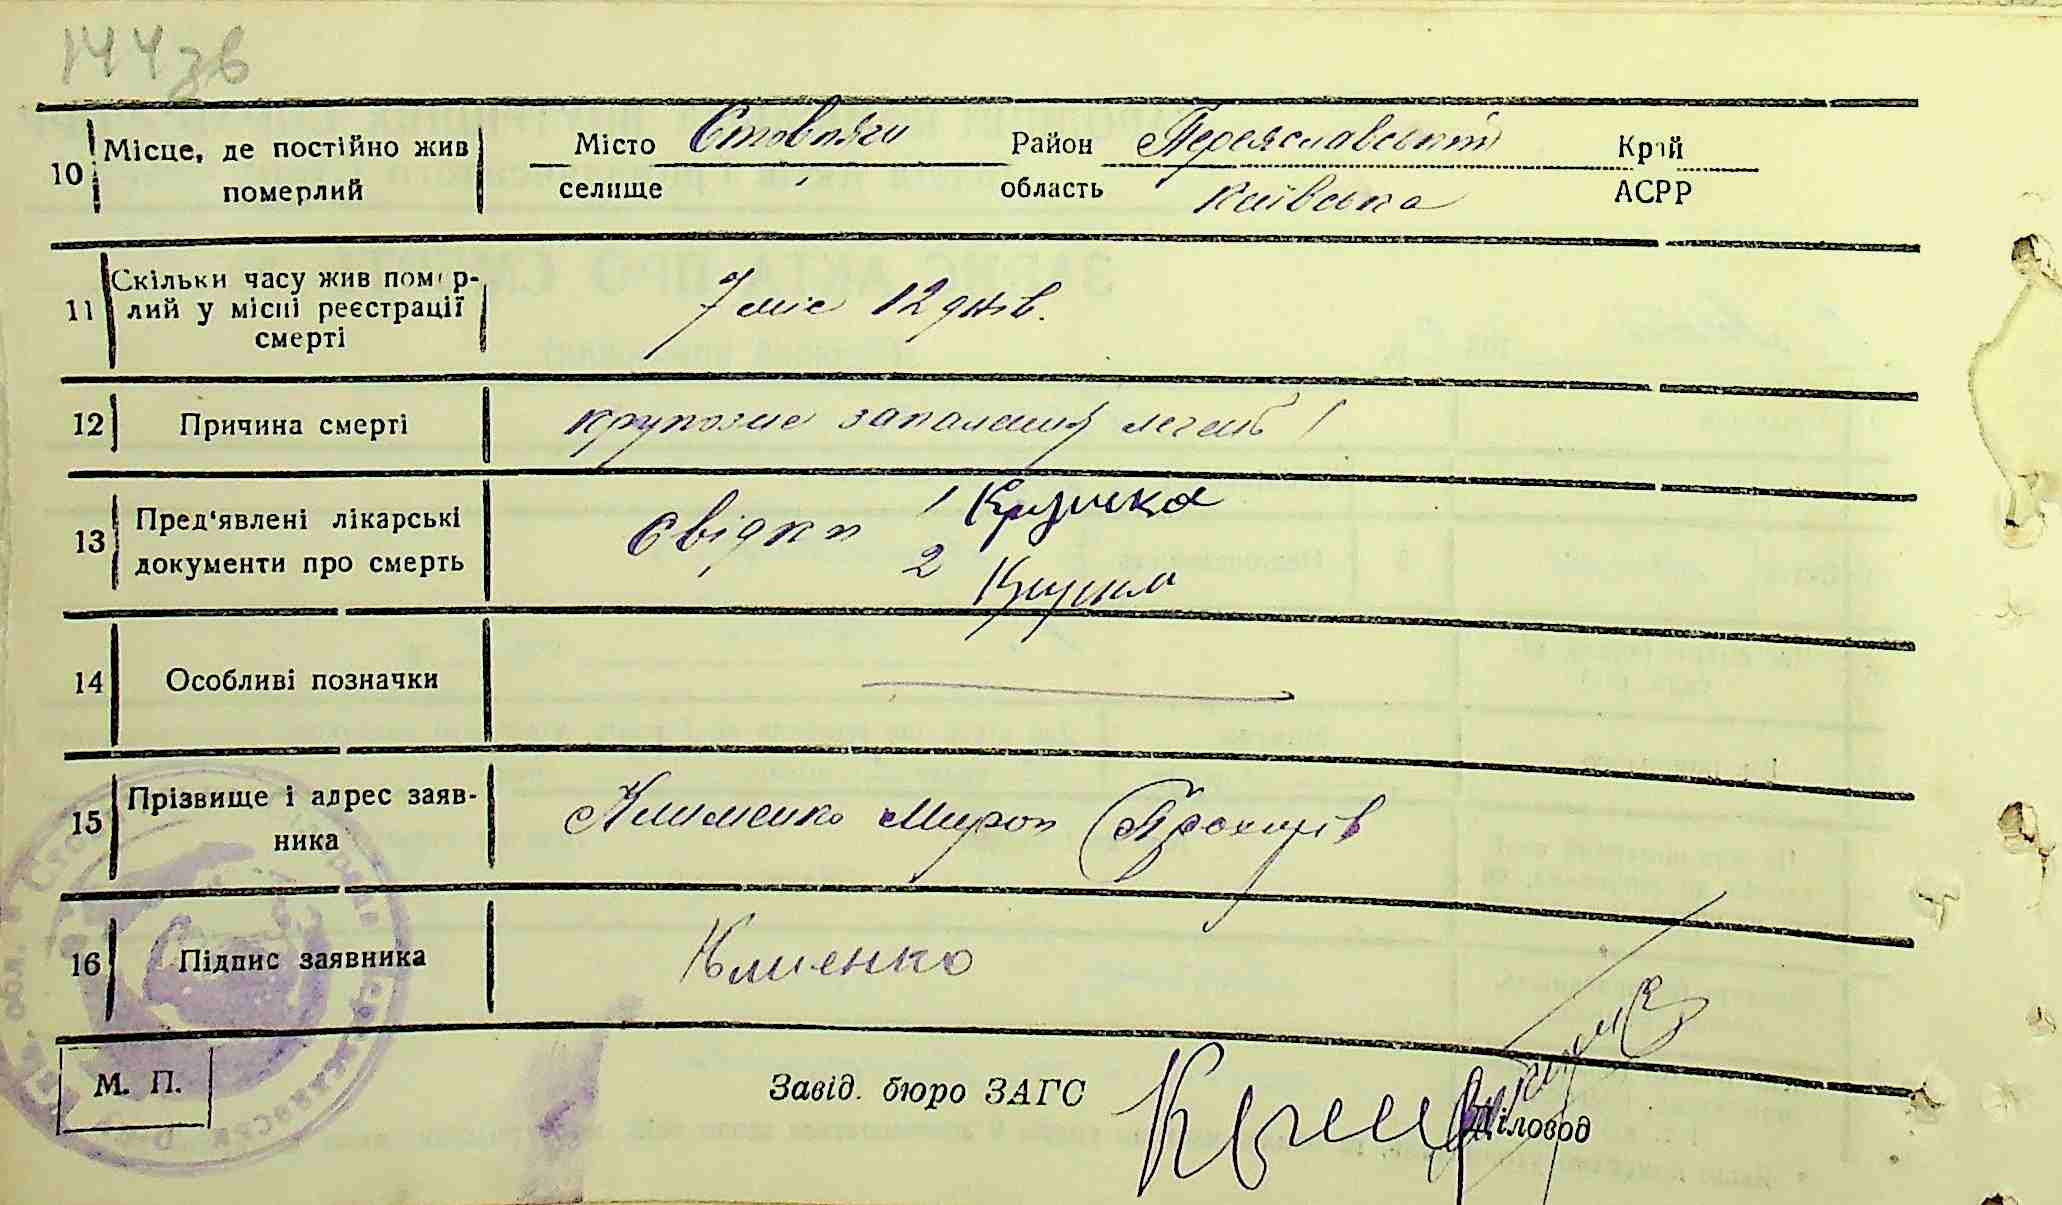 144 зв
10 Місце, де постійно жив померлий Місто селище Стовпяги Район область Переяславський Київська Край АСРР
11 Скільки часу жив помєрлий у місці реєстрації смерті 7 міс 12 днів.
12 Причина смерті крупозне запалення легень
13 Пред'явлені лікарські документи про смерть Свідки 1
2
14 Особливі позначки
15 Прізвище і адрес заявника Клименко Мирон
16 Підпис заявника Клиенко
М. П. Завід. бюро ЗАГС Діловод